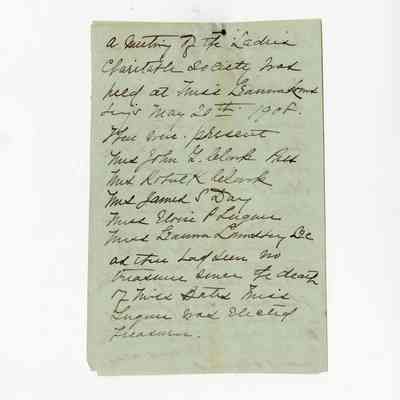 A Meeting of the Ladies
Charitable Society was
held at Miss Emma Louns
berys May 20th 1908.
There were present
Mrs John G. Clark Pres
Mrs Robert K Clark
Mrs James S Day
Miss Eloise P Luquer
Miss Emma Lounsbery Sec
as there had been no
treasurer since the death
of Miss Bates Miss
Luquer was Elected
Treasurer.